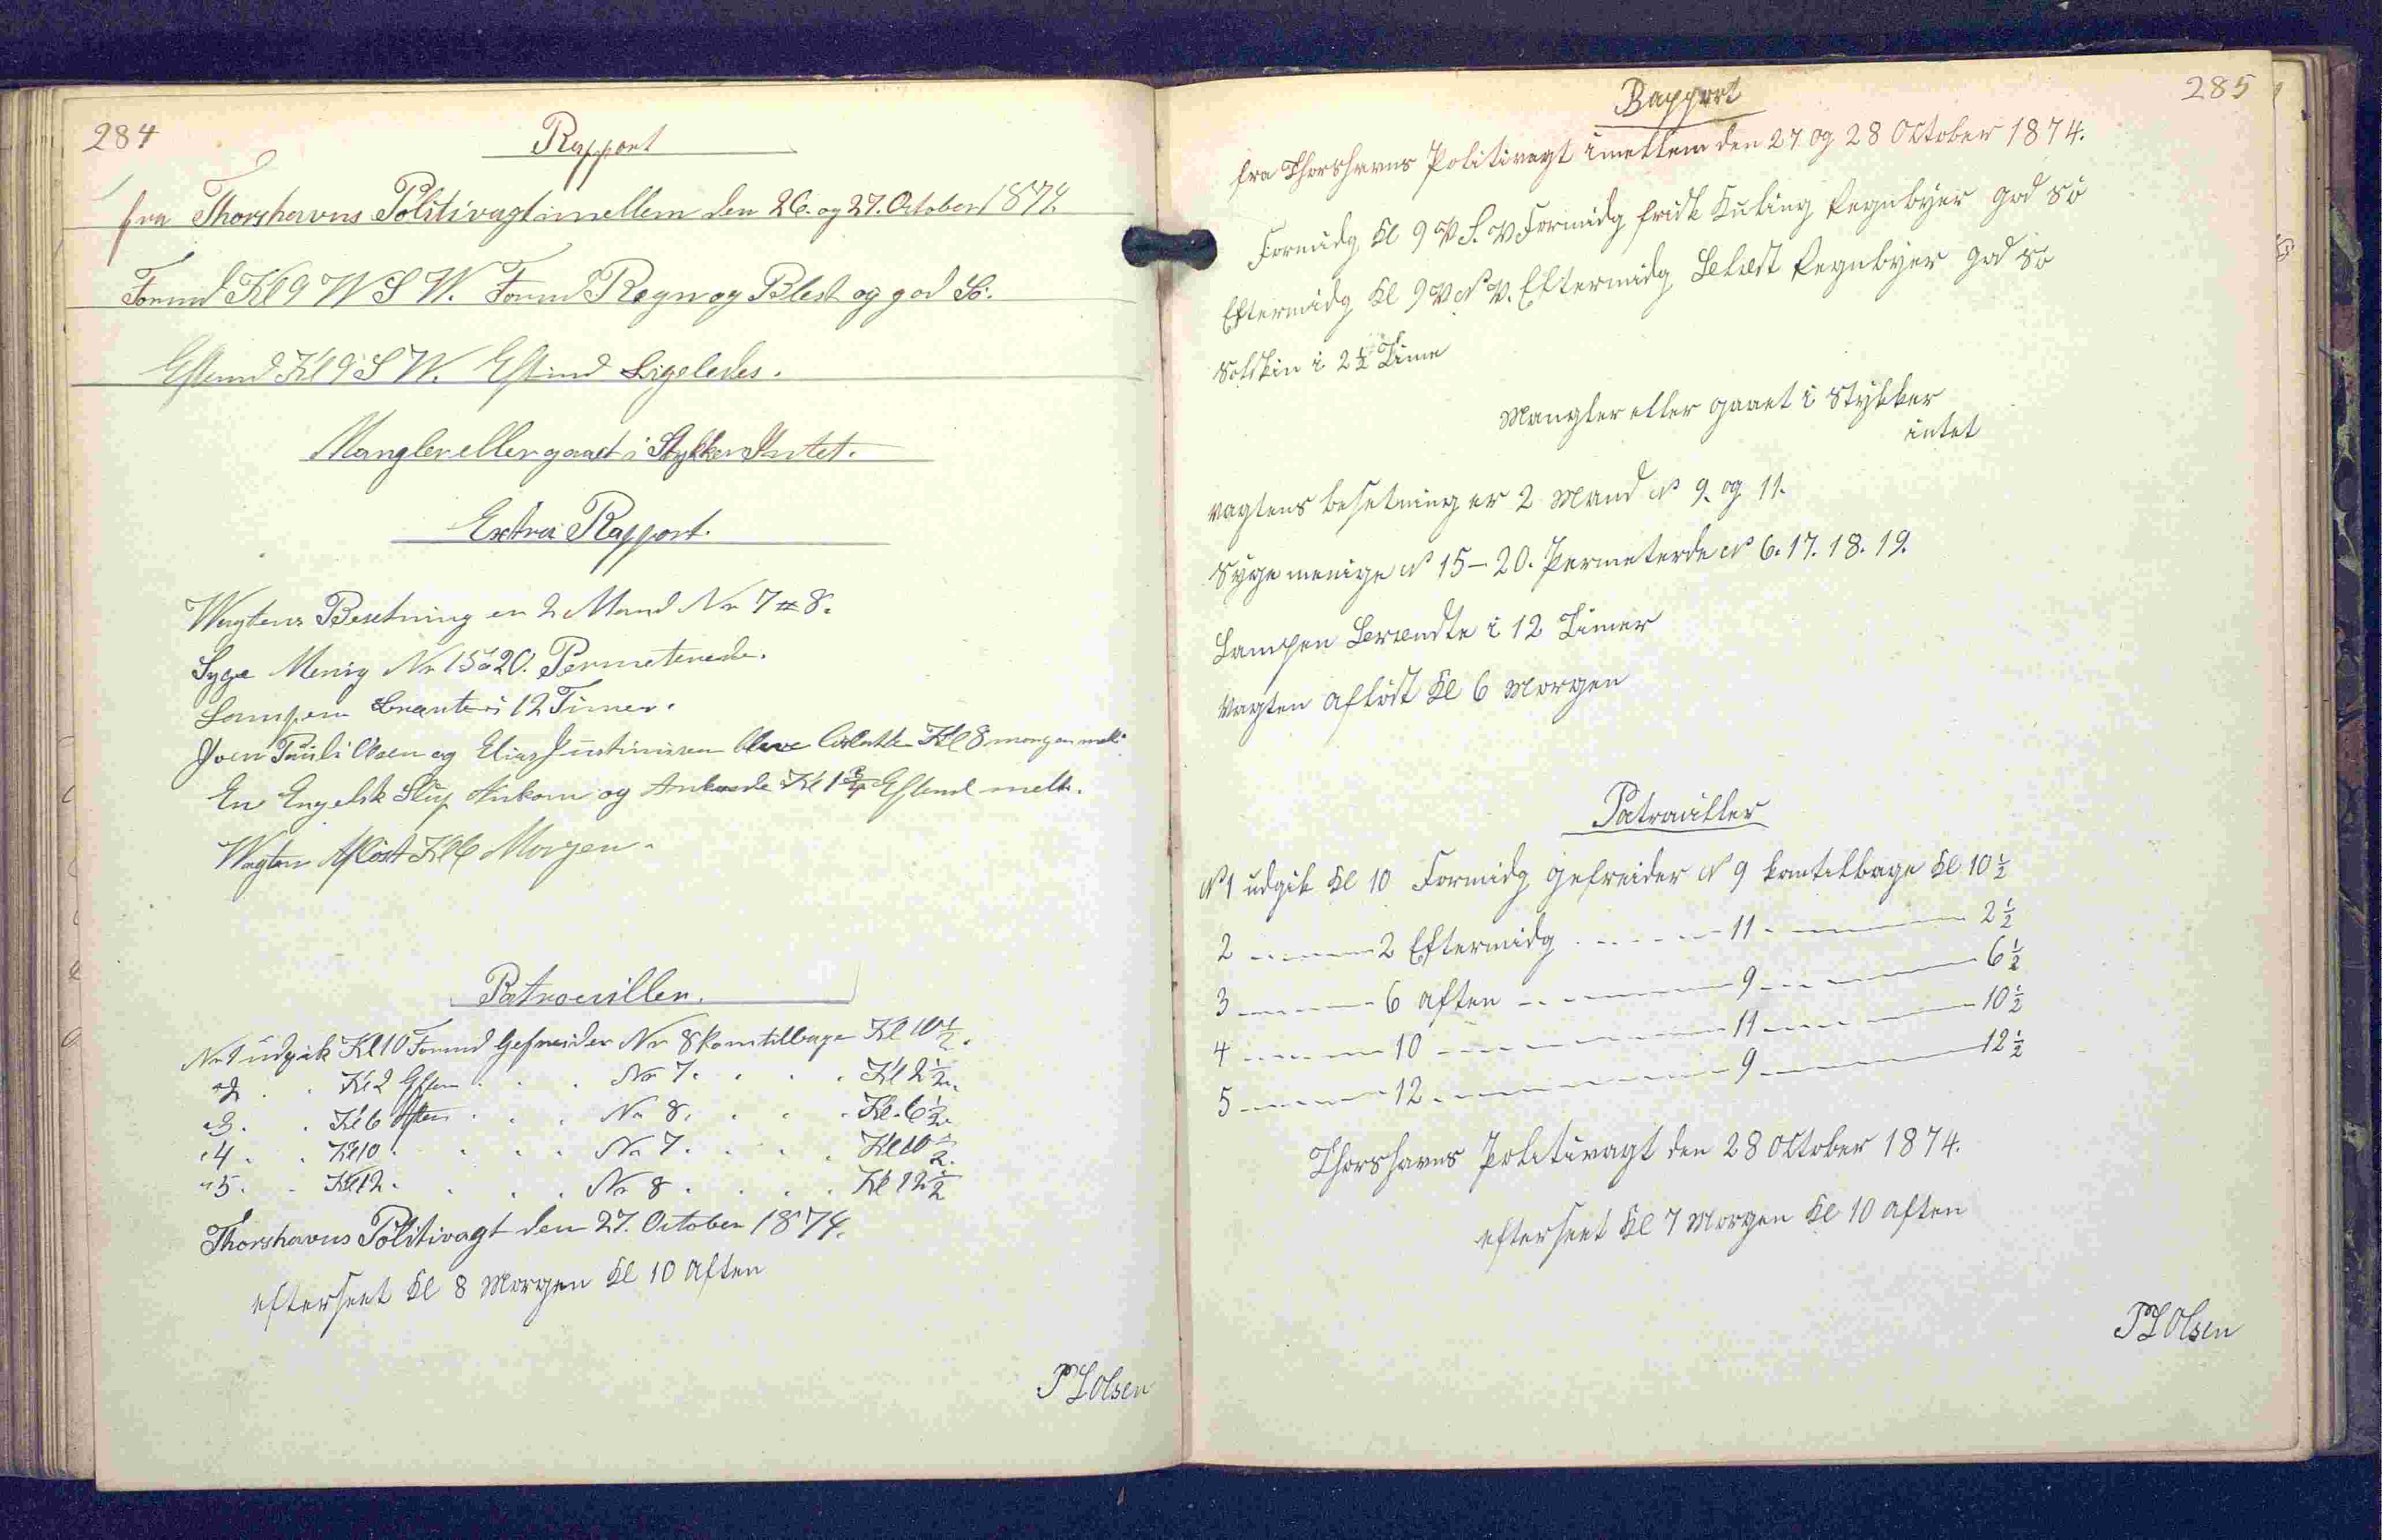 284
Rapport
fra Thorshavns Politivagt imellem den 26. og 27. October 1874
Formd Kl 9 W S W. Formd Regn og Blest og god Sö.
Eftemd Kl 9 S W. Eftmd Ligeledes.
Mangler eller gaaet i Stykker Intet.
Extra Rapport.
Wagtens Besetning er 2 Mand Nr 7 & 8.
Syge Menig Nr 15 à 20. Permeterede.
Lampen brænte i 12 Timer.
Joen Pauli Olsen og Elias Justinusen bleve Kl 8 morgen melt
En Engelsk Slup Ankom og Ankrede Kl 1 3/4 Eftemd melt.
Wagten Aflöst Kl 6 Morgen.
Patrouviller.
Nr 1 udgik Kl 10 Formd Gefreider Nr 8 kom tilbage Kl 10 1/2.
" 2 . . Kl 2 Eftem . . . Nr 7. . . . Kl 2 1/2.
" 3. . Kl 6 Aften . . . Nr 8. . . . Kl. 6 1/2.
" 4 . . Kl 10 . . . . Nr 7. . . . Kl 10 1/2.
" 5. . Kl 12 . . . . Nr 8 . . . . Kl 12 1/2
Thorshavns Politivagt den 27. October 1874.
efterseet Kl 8 Morgen Kl 10 Aften
P L Olsen
285
Rapport
fra Thorshavns Politivagt imellem den 27 og 28 October 1874.
Formidg Kl 9 V S. V Formidg frisk Kuling Regnbyer god Sö
Eftermidg Kl 9 V N V. Eftermidg Belæst Regnbyer god Sö
Solskin i 2 1/2 Time
Mangler eller gaaet i Stykker
intet
Vagtens besetning er 2 Mand N 9. og 11.
Syge menige N 15 – 20. Permeterde N 6. 17. 18. 19.
Lampen Brændte i 12 Timer
Vagten aflöst Kl 6 Morgen
Patrouiller
N 1 udgik Kl 10 Formidg gefreider N 9 kom tilbage Kl 10 1/2
2 ------ 2 Eftermidg ------ 11 ------ 2 1/2
3 ------ 6 aften ------ 9 ------ 6 1/2
4 ------ 10 ------ 11 ------ 10 1/2
5 ------ 12 ------ 9 ------ 12 1/2
Thorshavns Politivagt den 28 October 1874.
efterseet Kl 7 Morgen Kl 10 aften
P L Olsen